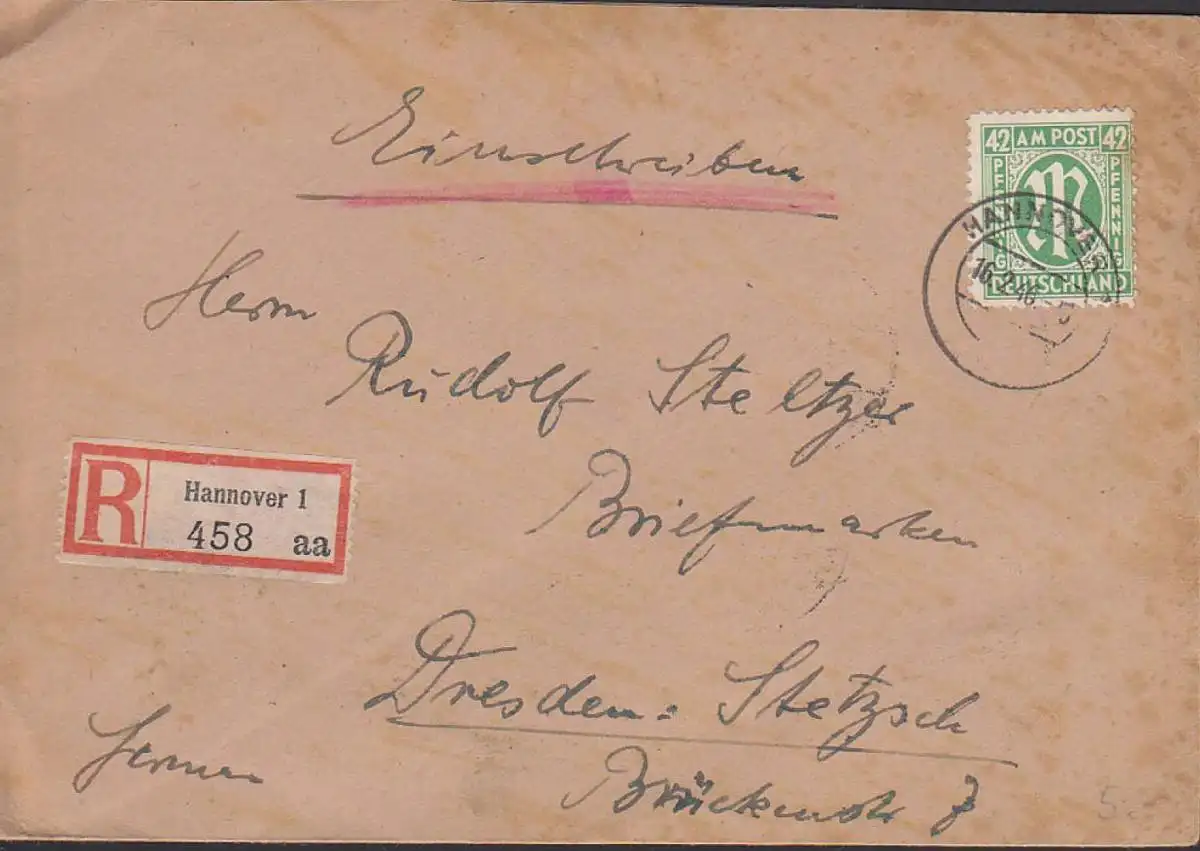 Einschreiben
42 AM POST 42
PFENNIG PFENNIG
DEUTSCHLAND
HANNOVER
16.2.46
Herrn
Rudolf Steltzer
Briefmarken
R Hannover 1
458 aa
Dresden-Stetzsch
Brückenstr 7